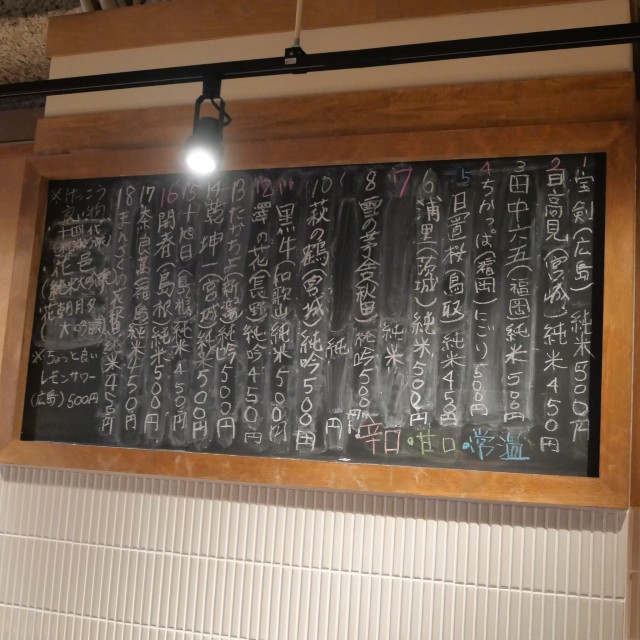 1 宝剣(広島) 純米500円
2 日高見(宮城) 純米450円
3 田中六五(福岡) 純米500円
4 ちかっぱ(福岡)にごり500円
5 日置桜(鳥取) 純米450円
6 浦里(茨城) 純米500円
7 純米
8 雪の茅舎(秋田) 純吟500円
純 円
10 萩の鶴(宮城) 純吟500円
11 黒牛(和歌山) 純米500円
12 澤の花(長野) 純吟450円
13 たかちよ(新潟) 純吟500円
14 乾坤一(宮城) 純米500円
15 十旭日(島根) 純米450円
16 開春(島根) 純米500円
17 奈良萬(福島) 純米450円
18 まんさくの花(秋田) 純米450円
※けっこう
高い酒
十四代
花邑
※ちょっと白い
レモンサワー
(広島)500円
・辛口・甘口・常温